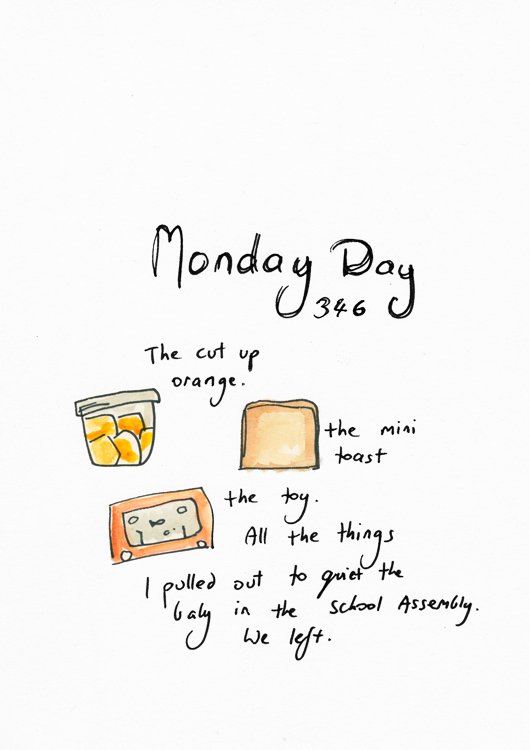 Monday Day
346
The cut up
orange.
the mini
toast
the toy.
All the things
I pulled out to quiet the
baby in the school Assembly.
We left.